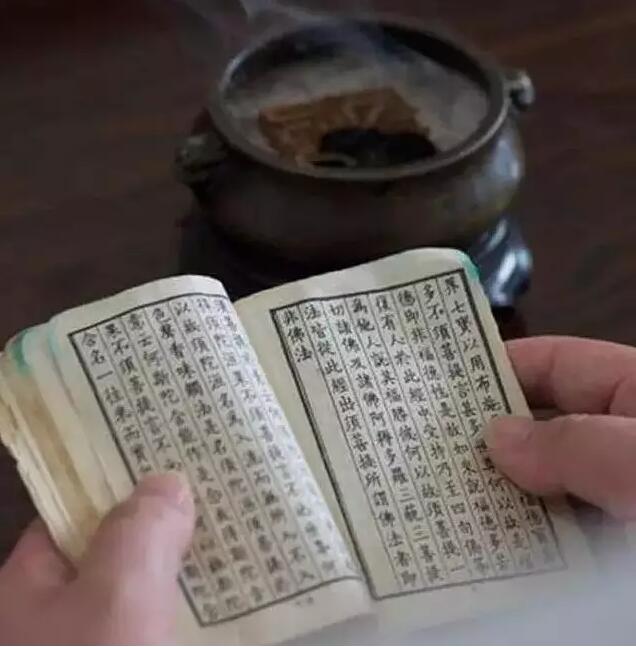 界七寶以用布施
多不須菩提言甚多世尊何以故是福
德即非福德性是故如來說福德多若
復有人於此經中受持乃至四句偈等
為他人說其福勝彼何以故須菩提一
切諸佛及諸佛阿耨多羅三藐三菩提
法皆從此經出須菩提所謂佛法者即
非佛法
得須陀洹果不須菩提言不也世尊何
以故須陀洹名為入流而無所入不入
色聲香味觸法是名須陀洹須菩提
意云何斯陀含能作是念我得斯陀含
果不須菩提言不
含名一往來而實